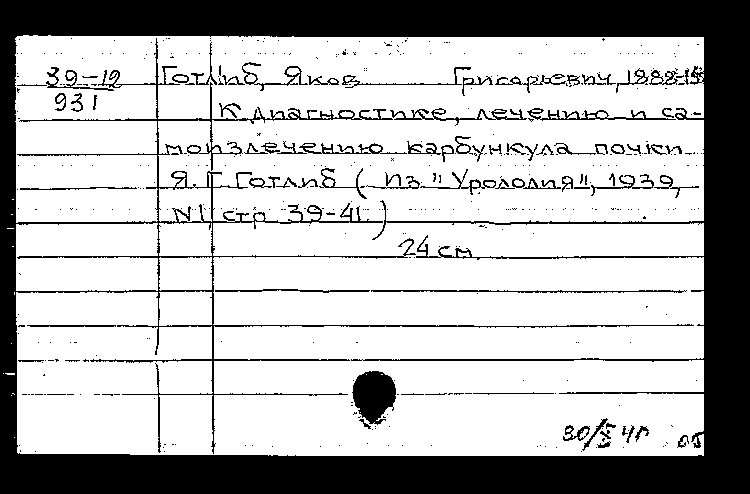 39-12 Готлиб, Яков Григорьевич, 1888-
931
К диагностике, лечению и са-
моизлечению карбункула почки
Я. Г. Готлиб (Из "Урология", 1939,
N1, стр 39-41.)
24 см.
30/X 41